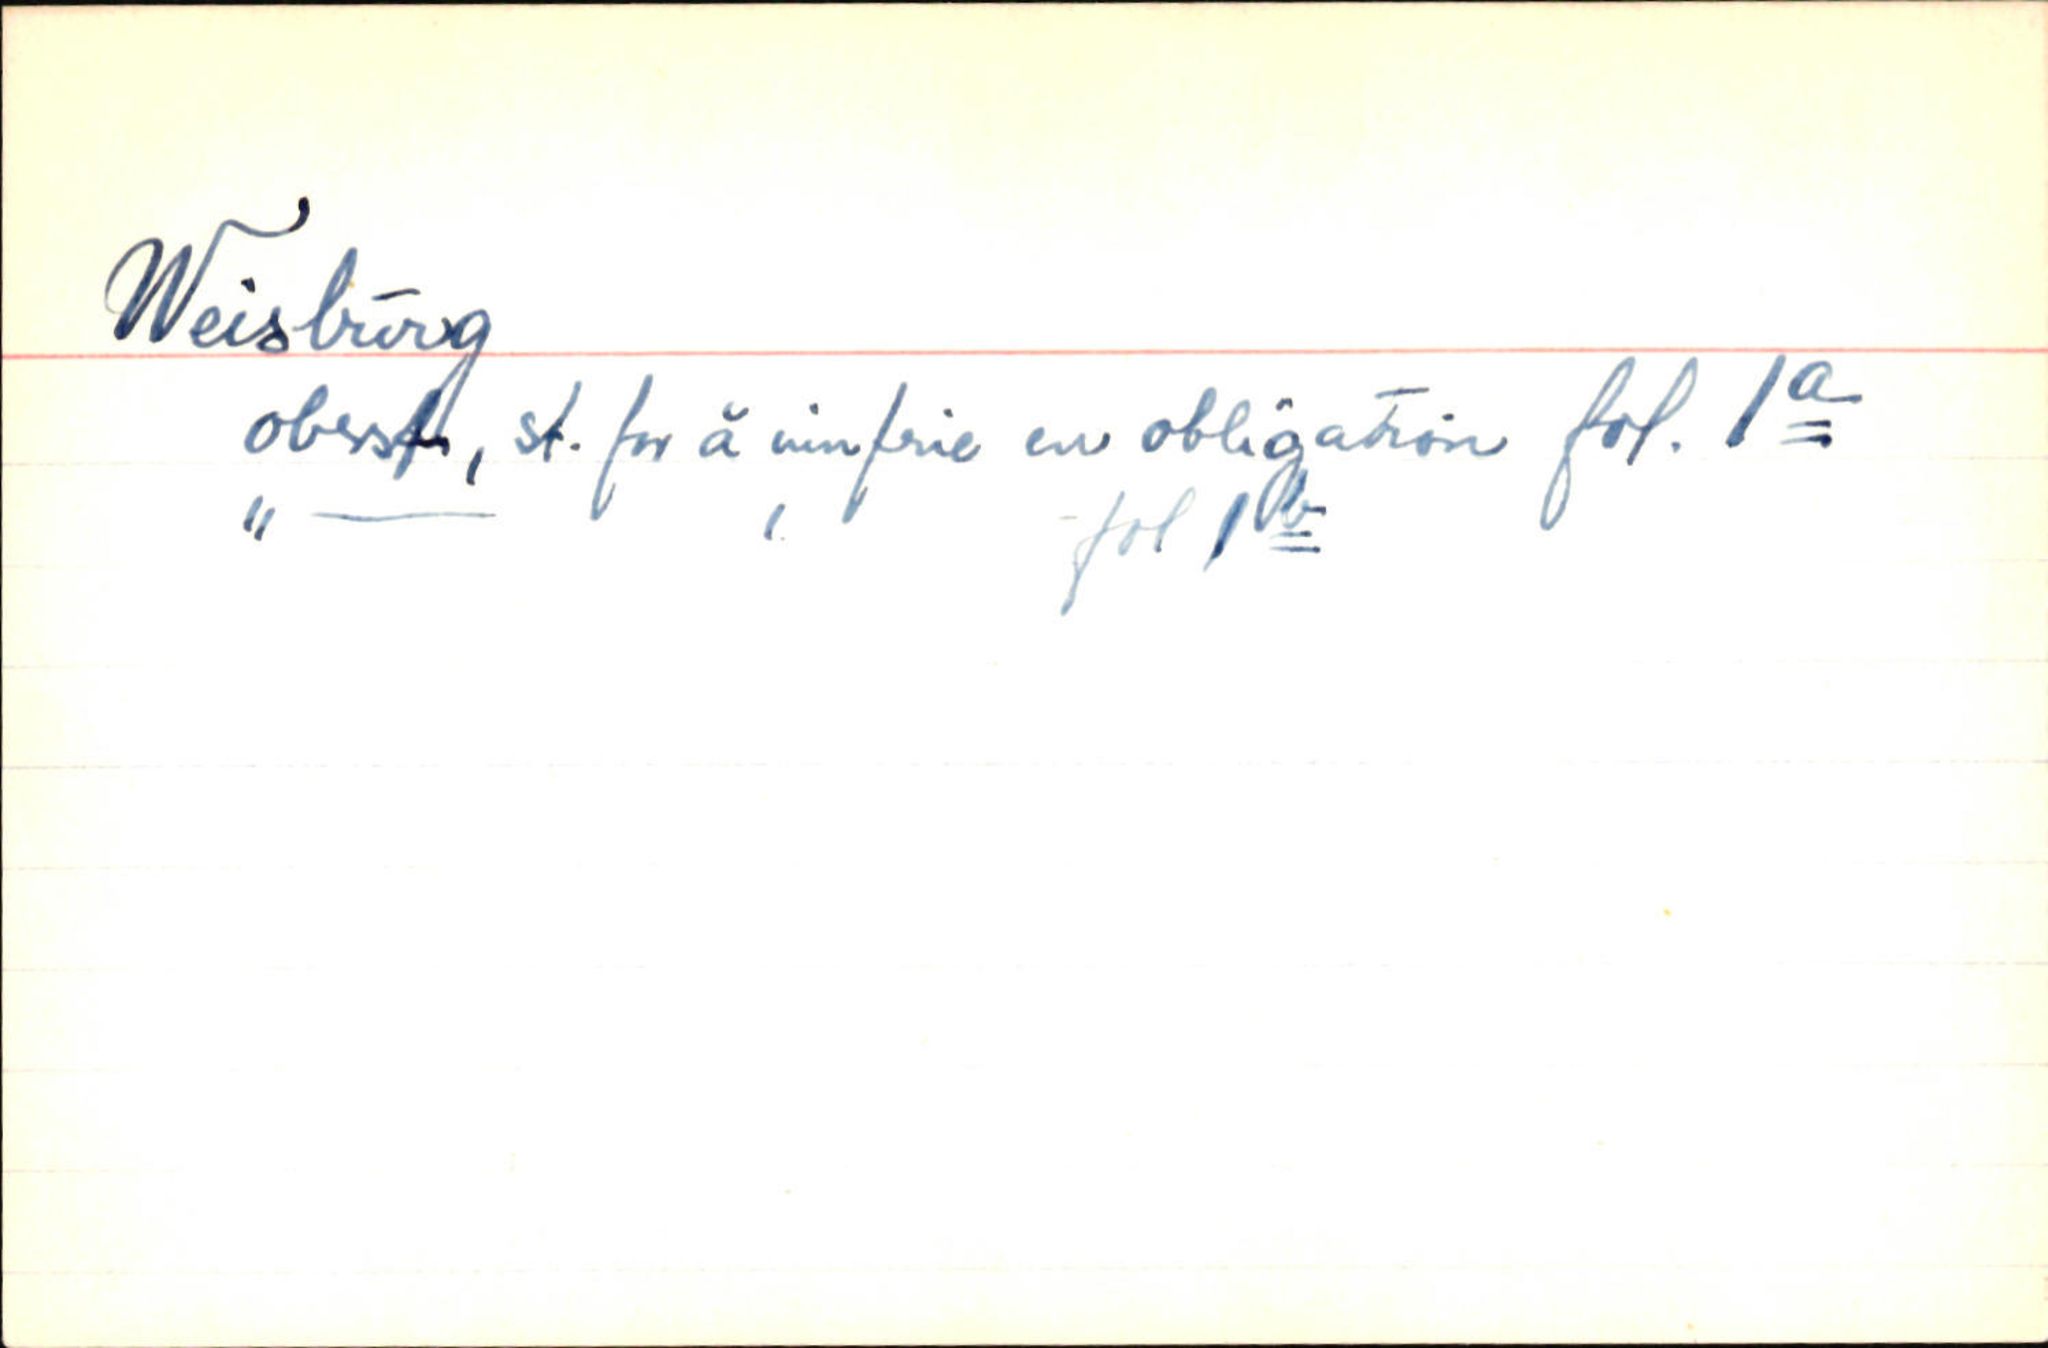 Weisburg
oberst, st. for å innfrie en obligation fol. 1a
" — " " fol 1b